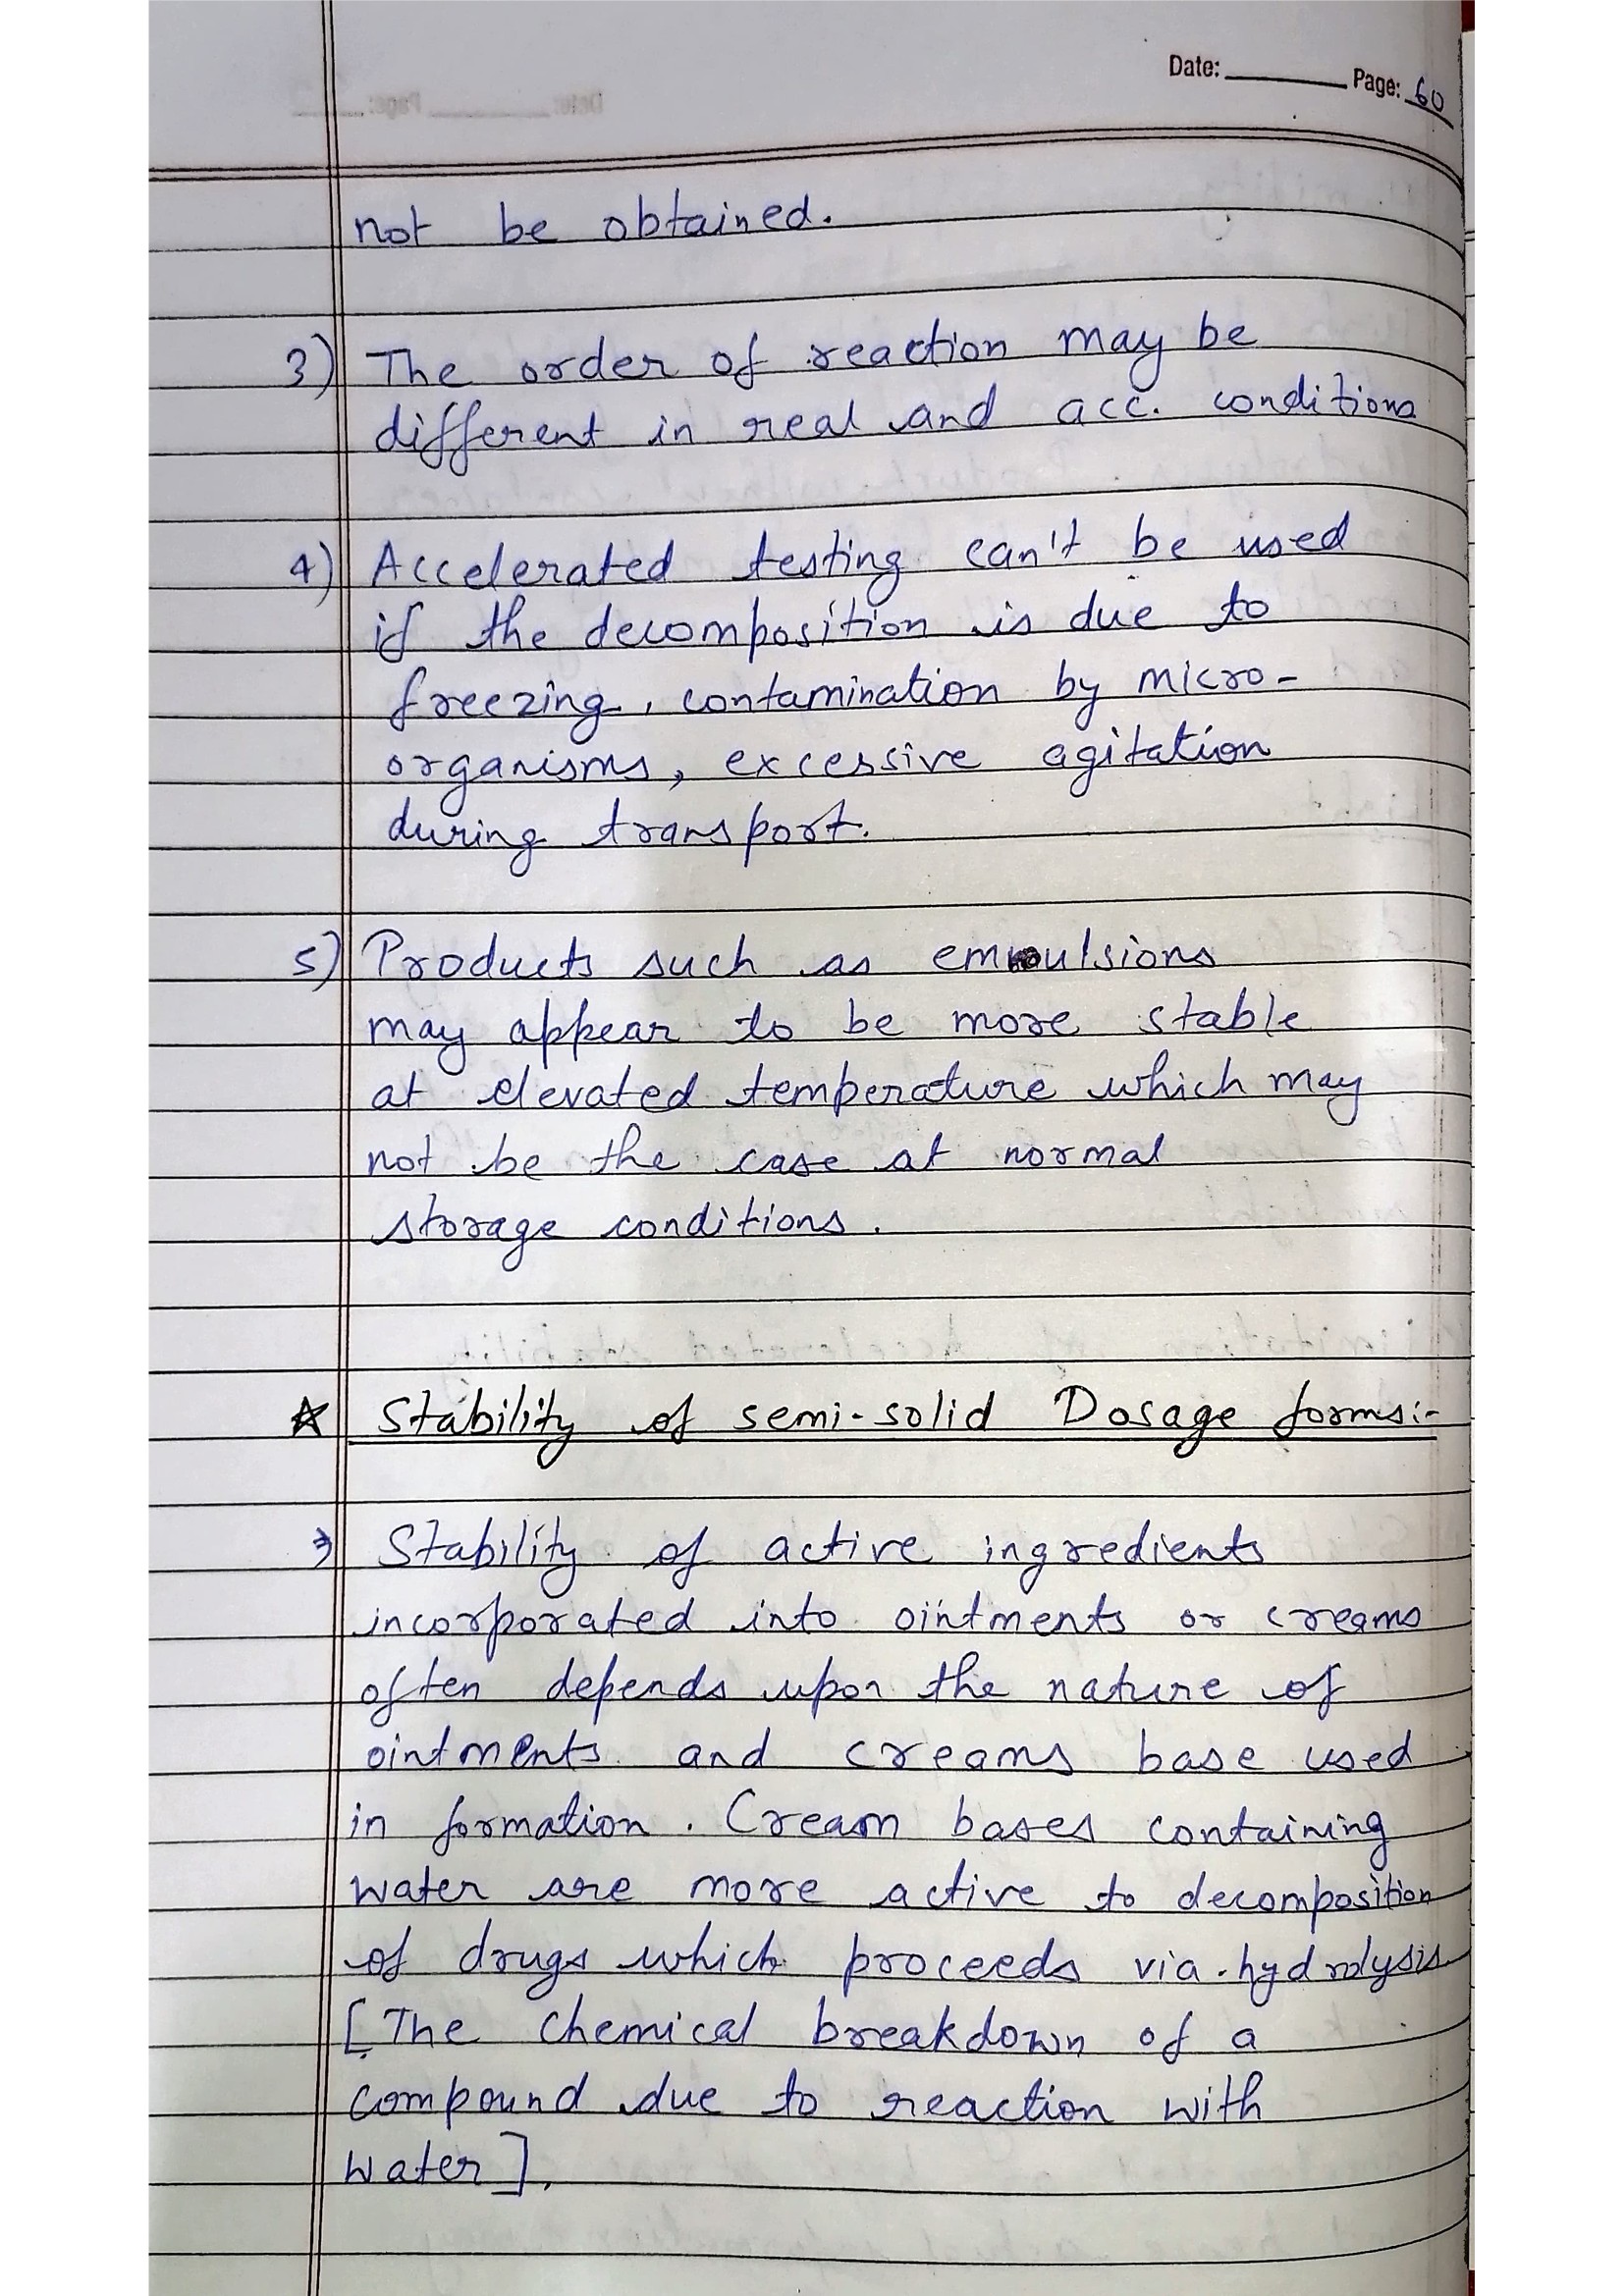 Date: Page: 60
not be obtained.
3) The order of reaction may be
different in real and acc. conditions
4) Accelerated testing can't be used
if the decomposition is due to
freezing, contamination by micro-
organisms, excessive agitation
during transport.
5) Products such as emulsions
may appear to be more stable
at elevated temperature which may
not be the case at normal
storage conditions.
☆ Stability of semi-solid Dosage forms:-
→ Stability of active ingredients
incorporated into ointments or creams
often depends upon the nature of
ointments and creams base used
in formation. Cream bases containing
water are more active to decomposition
of drugs which proceeds via hydrolysis.
[The chemical breakdown of a
compound due to reaction with
water].